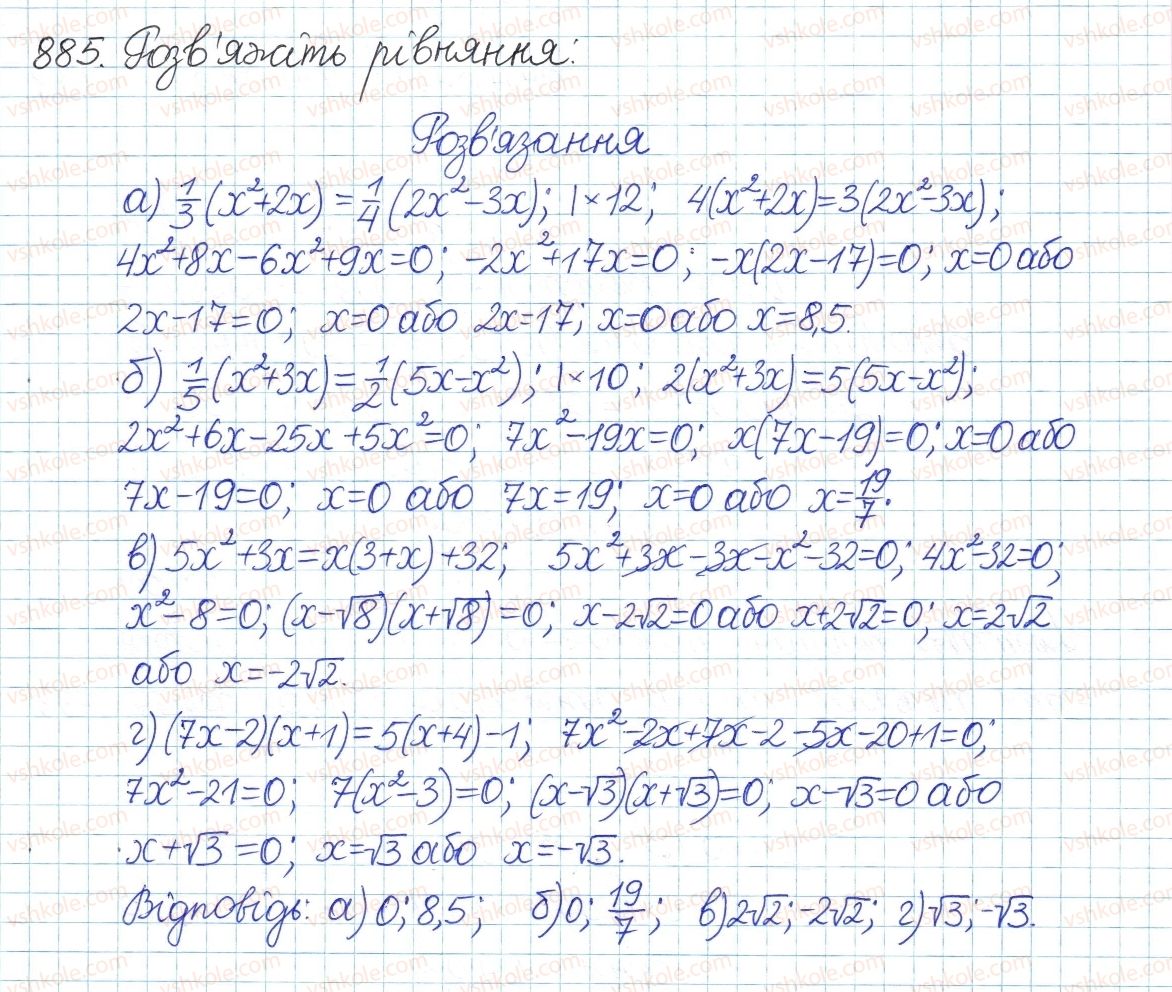 885. Розв'яжіть рівняння:
Розв'язання
а) 1/3(x²+2x)=1/4(2x²-3x); |×12; 4(x²+2x)=3(2x²-3x);
4x²+8x-6x²+9x=0; -2x²+17x=0; -x(2x-17)=0; x=0 або
2x-17=0; x=0 або 2x=17; x=0 або x=8,5.
б) 1/5(x²+3x)=1/2(5x-x²); |×10; 2(x²+3x)=5(5x-x²);
2x²+6x-25x+5x²=0; 7x²-19x=0; x(7x-19)=0; x=0 або
7x-19=0; x=0 або 7x=19; x=0 або x=19/7.
в) 5x²+3x=x(3+x)+32; 5x²+3x-3x-x²-32=0; 4x²-32=0;
x²-8=0; (x-√8)(x+√8)=0; x-2√2=0 або x+2√2=0; x=2√2
або x=-2√2.
г) (7x-2)(x+1)=5(x+4)-1; 7x²-2x+7x-2-5x-20+1=0;
7x²-21=0; 7(x²-3)=0; (x-√3)(x+√3)=0; x-√3=0 або
x+√3=0; x=√3 або x=-√3.
Відповідь: а) 0; 8,5; б) 0; 19/7; в) 2√2; -2√2; г) √3; -√3.